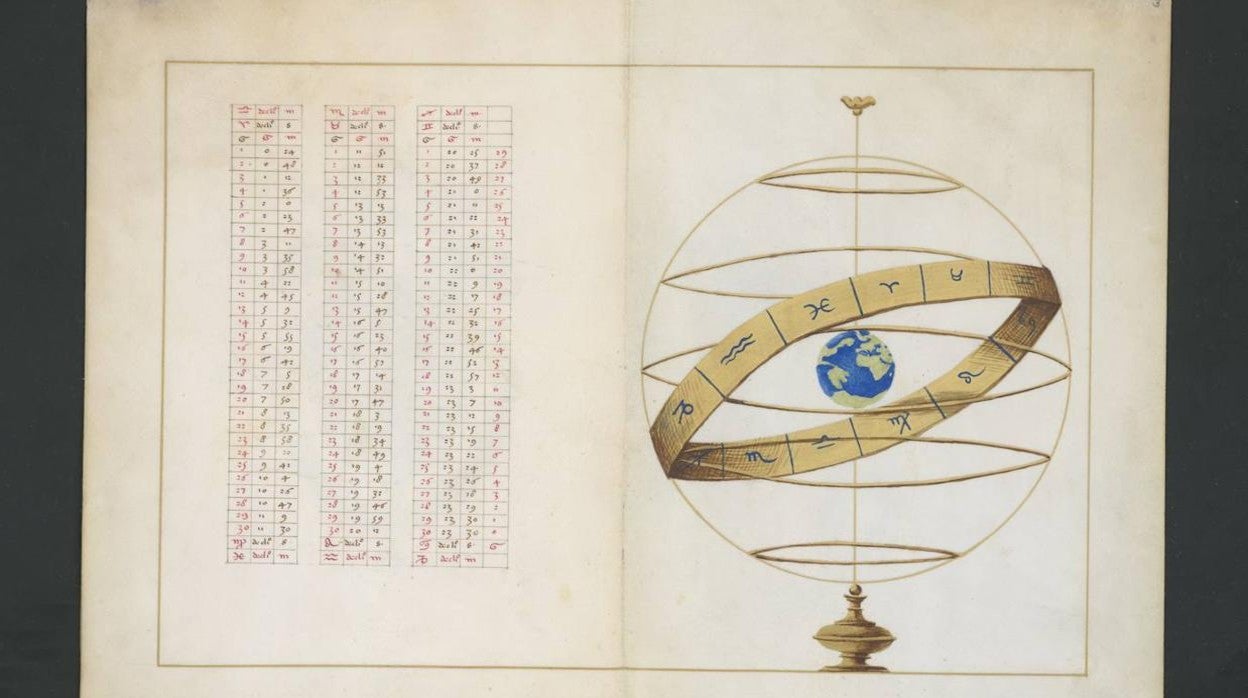 ♎ m ♏ m ♐ m
♈ s ♉ s ♊ s
G G m G G m G G m
1 0 24 1 11 51 1 20 25 29
2 0 48 2 12 12 2 20 37 28
3 1 12 3 12 33 3 20 49 27
4 1 36 4 12 53 4 21 0 26
5 2 0 5 13 13 5 21 11 25
6 2 23 6 13 33 6 21 22 24
7 2 47 7 13 53 7 21 32 23
8 3 11 8 14 13 8 21 42 22
9 3 35 9 14 32 9 21 51 21
10 3 58 10 14 51 10 22 0 20
11 4 22 11 15 10 11 22 9 19
12 4 45 12 15 28 12 22 17 18
13 5 9 13 15 47 13 22 25 17
14 5 32 14 16 5 14 22 32 16
15 5 55 15 16 23 15 22 39 15
16 6 19 16 16 40 16 22 46 14
17 6 42 17 16 57 17 22 52 13
18 7 5 18 17 14 18 22 57 12
19 7 28 19 17 31 19 23 3 11
20 7 50 20 17 47 20 23 7 10
21 8 13 21 18 3 21 23 12 9
22 8 35 22 18 19 22 23 15 8
23 8 58 23 18 34 23 23 19 7
24 9 24 18 49 24 23 22 6
25 9 42 25 19 4 25 23 24 5
26 10 4 26 19 18 26 23 26 4
27 10 26 27 19 32 27 23 28 3
28 10 47 28 19 46 28 23 29 2
29 11 9 29 19 59 29 23 30 1
30 11 30 30 20 12 30 23 30 0
♍ s ♌ s ♋ s G
♓ m ♒ m ♑ m
♓ ♈ ♉ ♊
♒ ♋
♑ ♌
♐ ♏ ♎ ♍